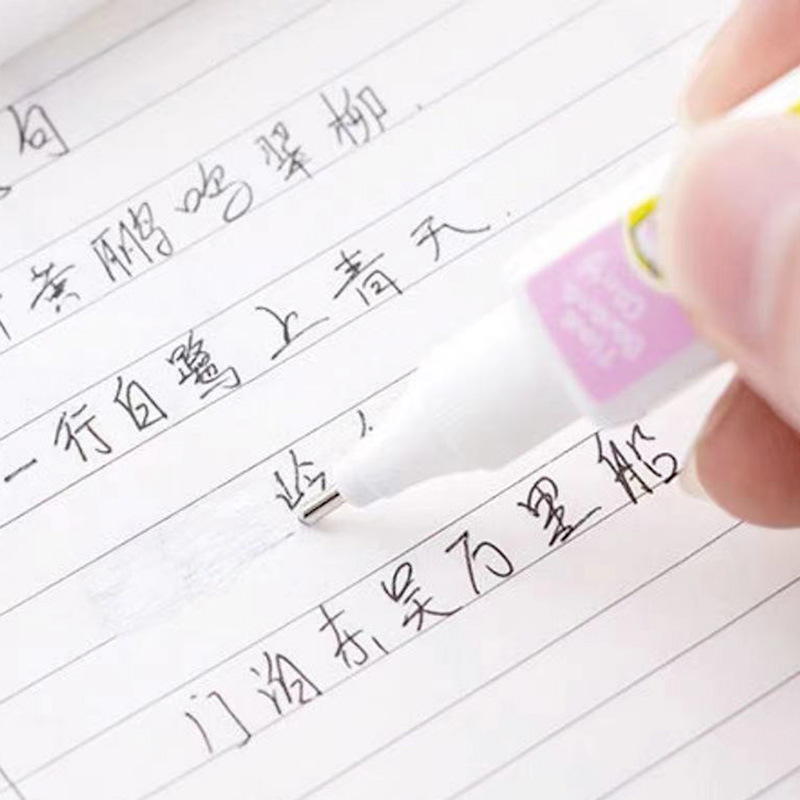 句
黄鹂鸣翠柳.
一行白鹭上青天.
岭
门泊东吴万里船